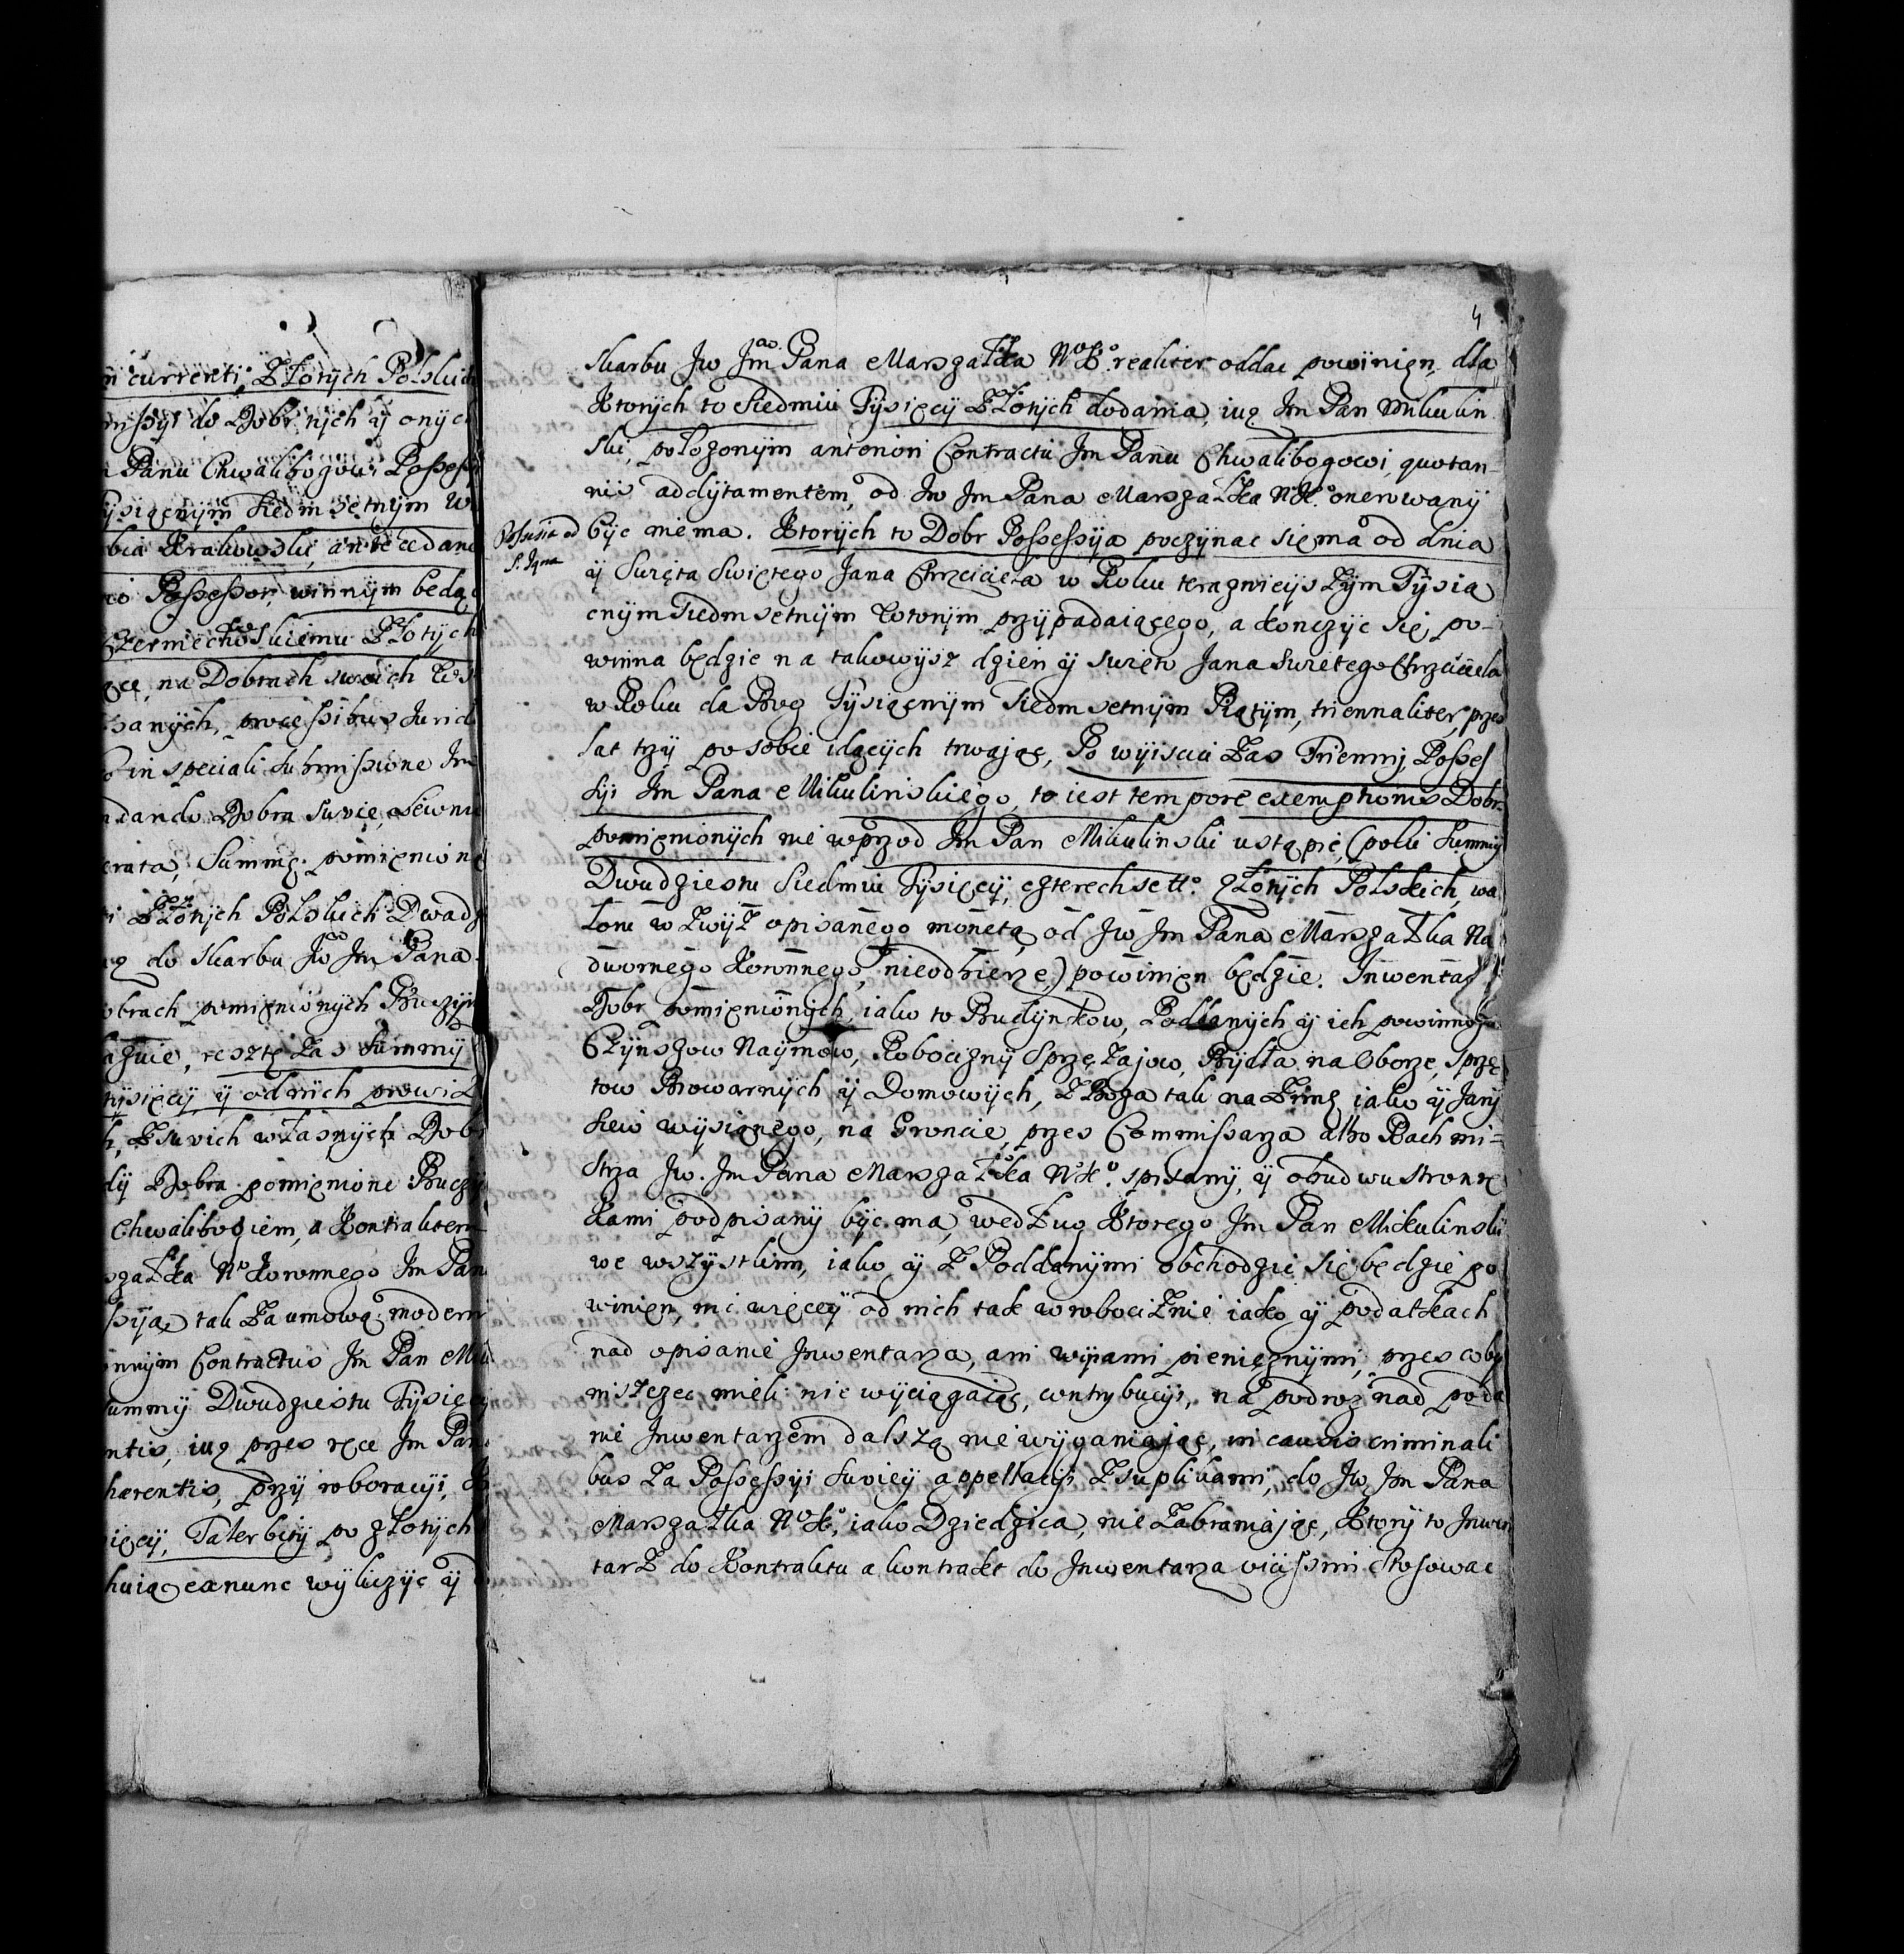 n currenti, Złotych Polskich
missyi do Dobr tych ÿ onych
Panu Chwalibogowi Possess
ysiącnym Siedm setnym w
bia Krakowski, antecedane
Possessor, winnym będąc
Czermiechowskiemu Złotych
na Dobrach swoich
sanych, processibus Jurid
in speciali submissione Jm
dando Dobra swoie,
rata, Summę pomięnioną
Złotych Polskich Dwadz
do Skarbu Jw Jm Pana
obrach pomięnionych Buczyn
resztę zas Summy
tysięcy ÿ od nich prowiz
Zswoich własnych Dobr
dy Dobra pomięnione Buczy
Chwalibogiem, a Kontraktem
szałka No Koronnego Jm Pan
ssyją tak Za umową modern
nnym Contractus Jm Pan Miku
ummy Dwudziestu Tysięcy
ntis, iuz przes ręce Jm Pan
hærentis, przy roboracyi,
ięcy, Taler bity po złotych
huiąc ex nunc wyliczyc ÿ
4
Skarbu Jw Jmo Pana Marszałka No Ko realiter oddac powinien, dla
Ktorych to Siedmiu Tysięcy Złotych dodania, iuz Jm Pan Mikulin
ski, położonym anteriori Contractu Jm Panu Chwalibogowi, quotan
nis addytamentem, od Jw Jm Pana Marszałka No Ko onerowany
Possessia od S. Jana
byc niema. Ktorych to Dobr Possessyja poczynac się ma od dnia
ÿ Swięta Swiętego Jana Chrzciciela w Roku teraznieyszym Tysią
cnym Siedm setnym wtorym przypadaiącego, a konczyc się po-
winna będzie na takowysz dzien ÿ swięto Jana Swiętego Chrzciciela
w Roku da Bog Tysiącnym Siedmsetnym Piątym, triennaliter, przes
lat trzy po sobie idących trwając, Po wyisciu Zas Trienny Posses
syi Jm Pana Mikulinskiego, to iest tempore exemptionis Dobr
pomięnionych nie wprzod Jm Pan Mikulinski ustąpic, (poki Summy
Dwudziestu Siedmiu Tysięcy, czterechsetto złotych Polskich, wa
lorie wzwyz opisanego monetą, od Jw Jm Pana Marszałka Na
dwornego Koronnego, nieodbierze) powinien będzie. Inwentarz
Dobr pomięnionych, iako to Budynkow, Poddanych ÿ ich powinnosc
Czynszow Naymow, Robocizny Sprzężajow, Bydła na Oborze, sprzę
tow Browarnych ÿ Domowych, Zboża tak na Zimę iako ÿ Jarÿ
siew wysianego, na Groncie, przes Commissarza albo Rachmi-
strza Jw. Jm Pana Marszałka No Ko spisany, ÿ obudwu stron rę
kami podpisany byc ma, według Ktorego Jm Pan Mikulinski
we wszystkim, iako ÿ z Poddanymi obchodzic się będzie po
winien, nic więcey od nich tak w robociznie iako ÿ podatkach
nad opisanie Inwentarza, ani winami pienięznymi, przes coby
niszczec mieli nie wyciągaiąc, contrybucyi, na podroz nad poda
nie Inwentarzem dalszą nie wyganiając, in causis criminali
bus za Possessyi swoiey appellacyi, z suplikami, do Jw Jm Pana
Marszałka No Ko, iako Dziedzica, nie zabraniając, Ktory to Inwen
tarz do Kontraktu a kontrakt do Inwentarza vicissim stosowac